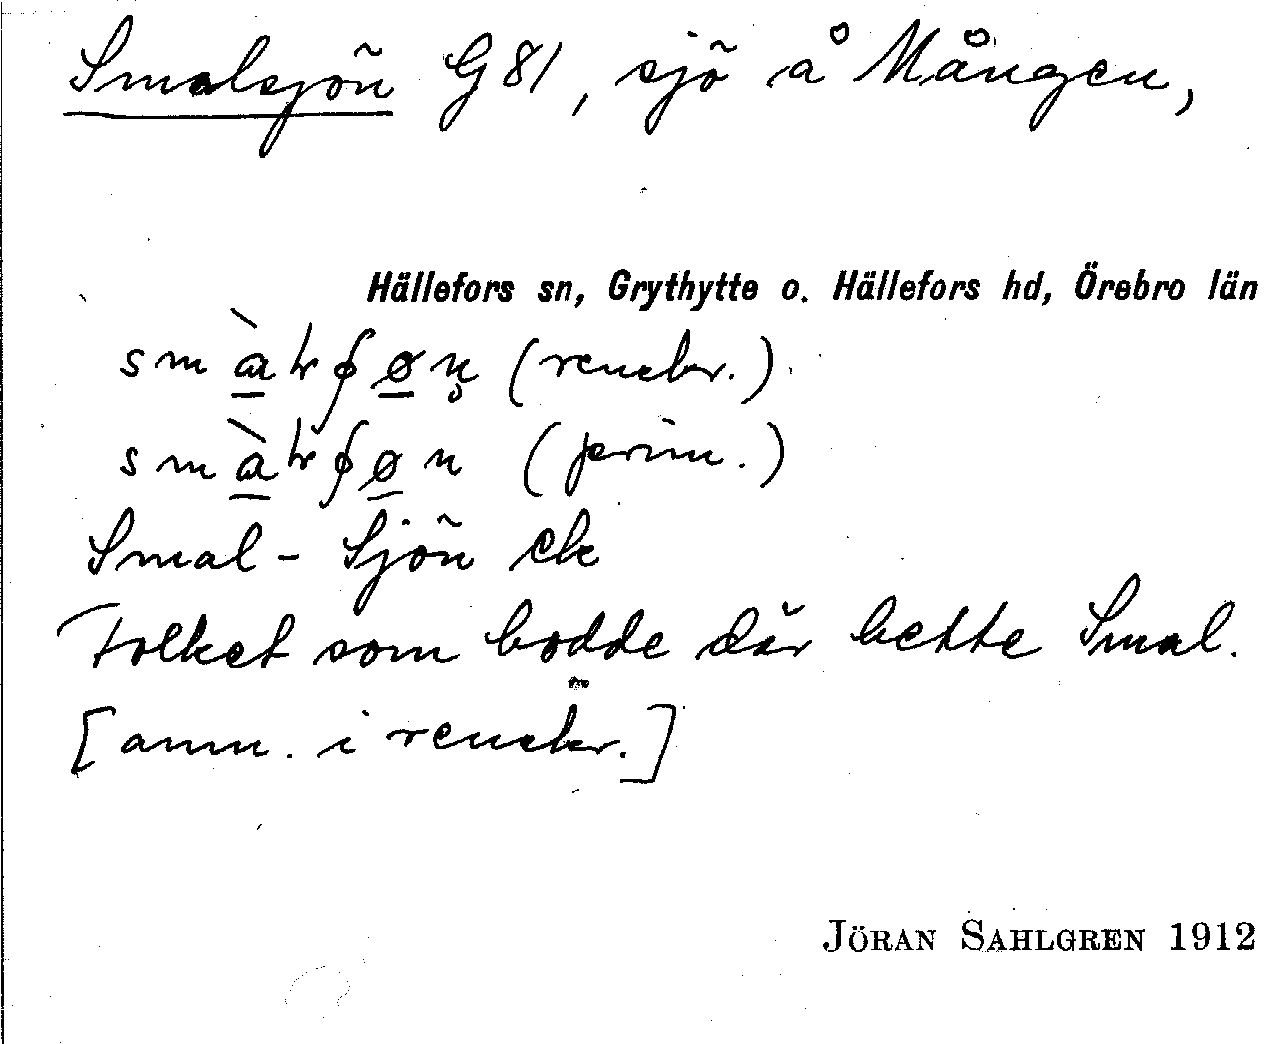 Smalsjön G81, sjö å Mången,
Hällefors sn, Grythytte o. Hällefors hd, Örebro län
(renskr.)
(prim.)
Smal-Sjön ek
Folket som bodde där hette Smal.
[anm. i renskr.]
JÖRAN SAHLGREN 1912